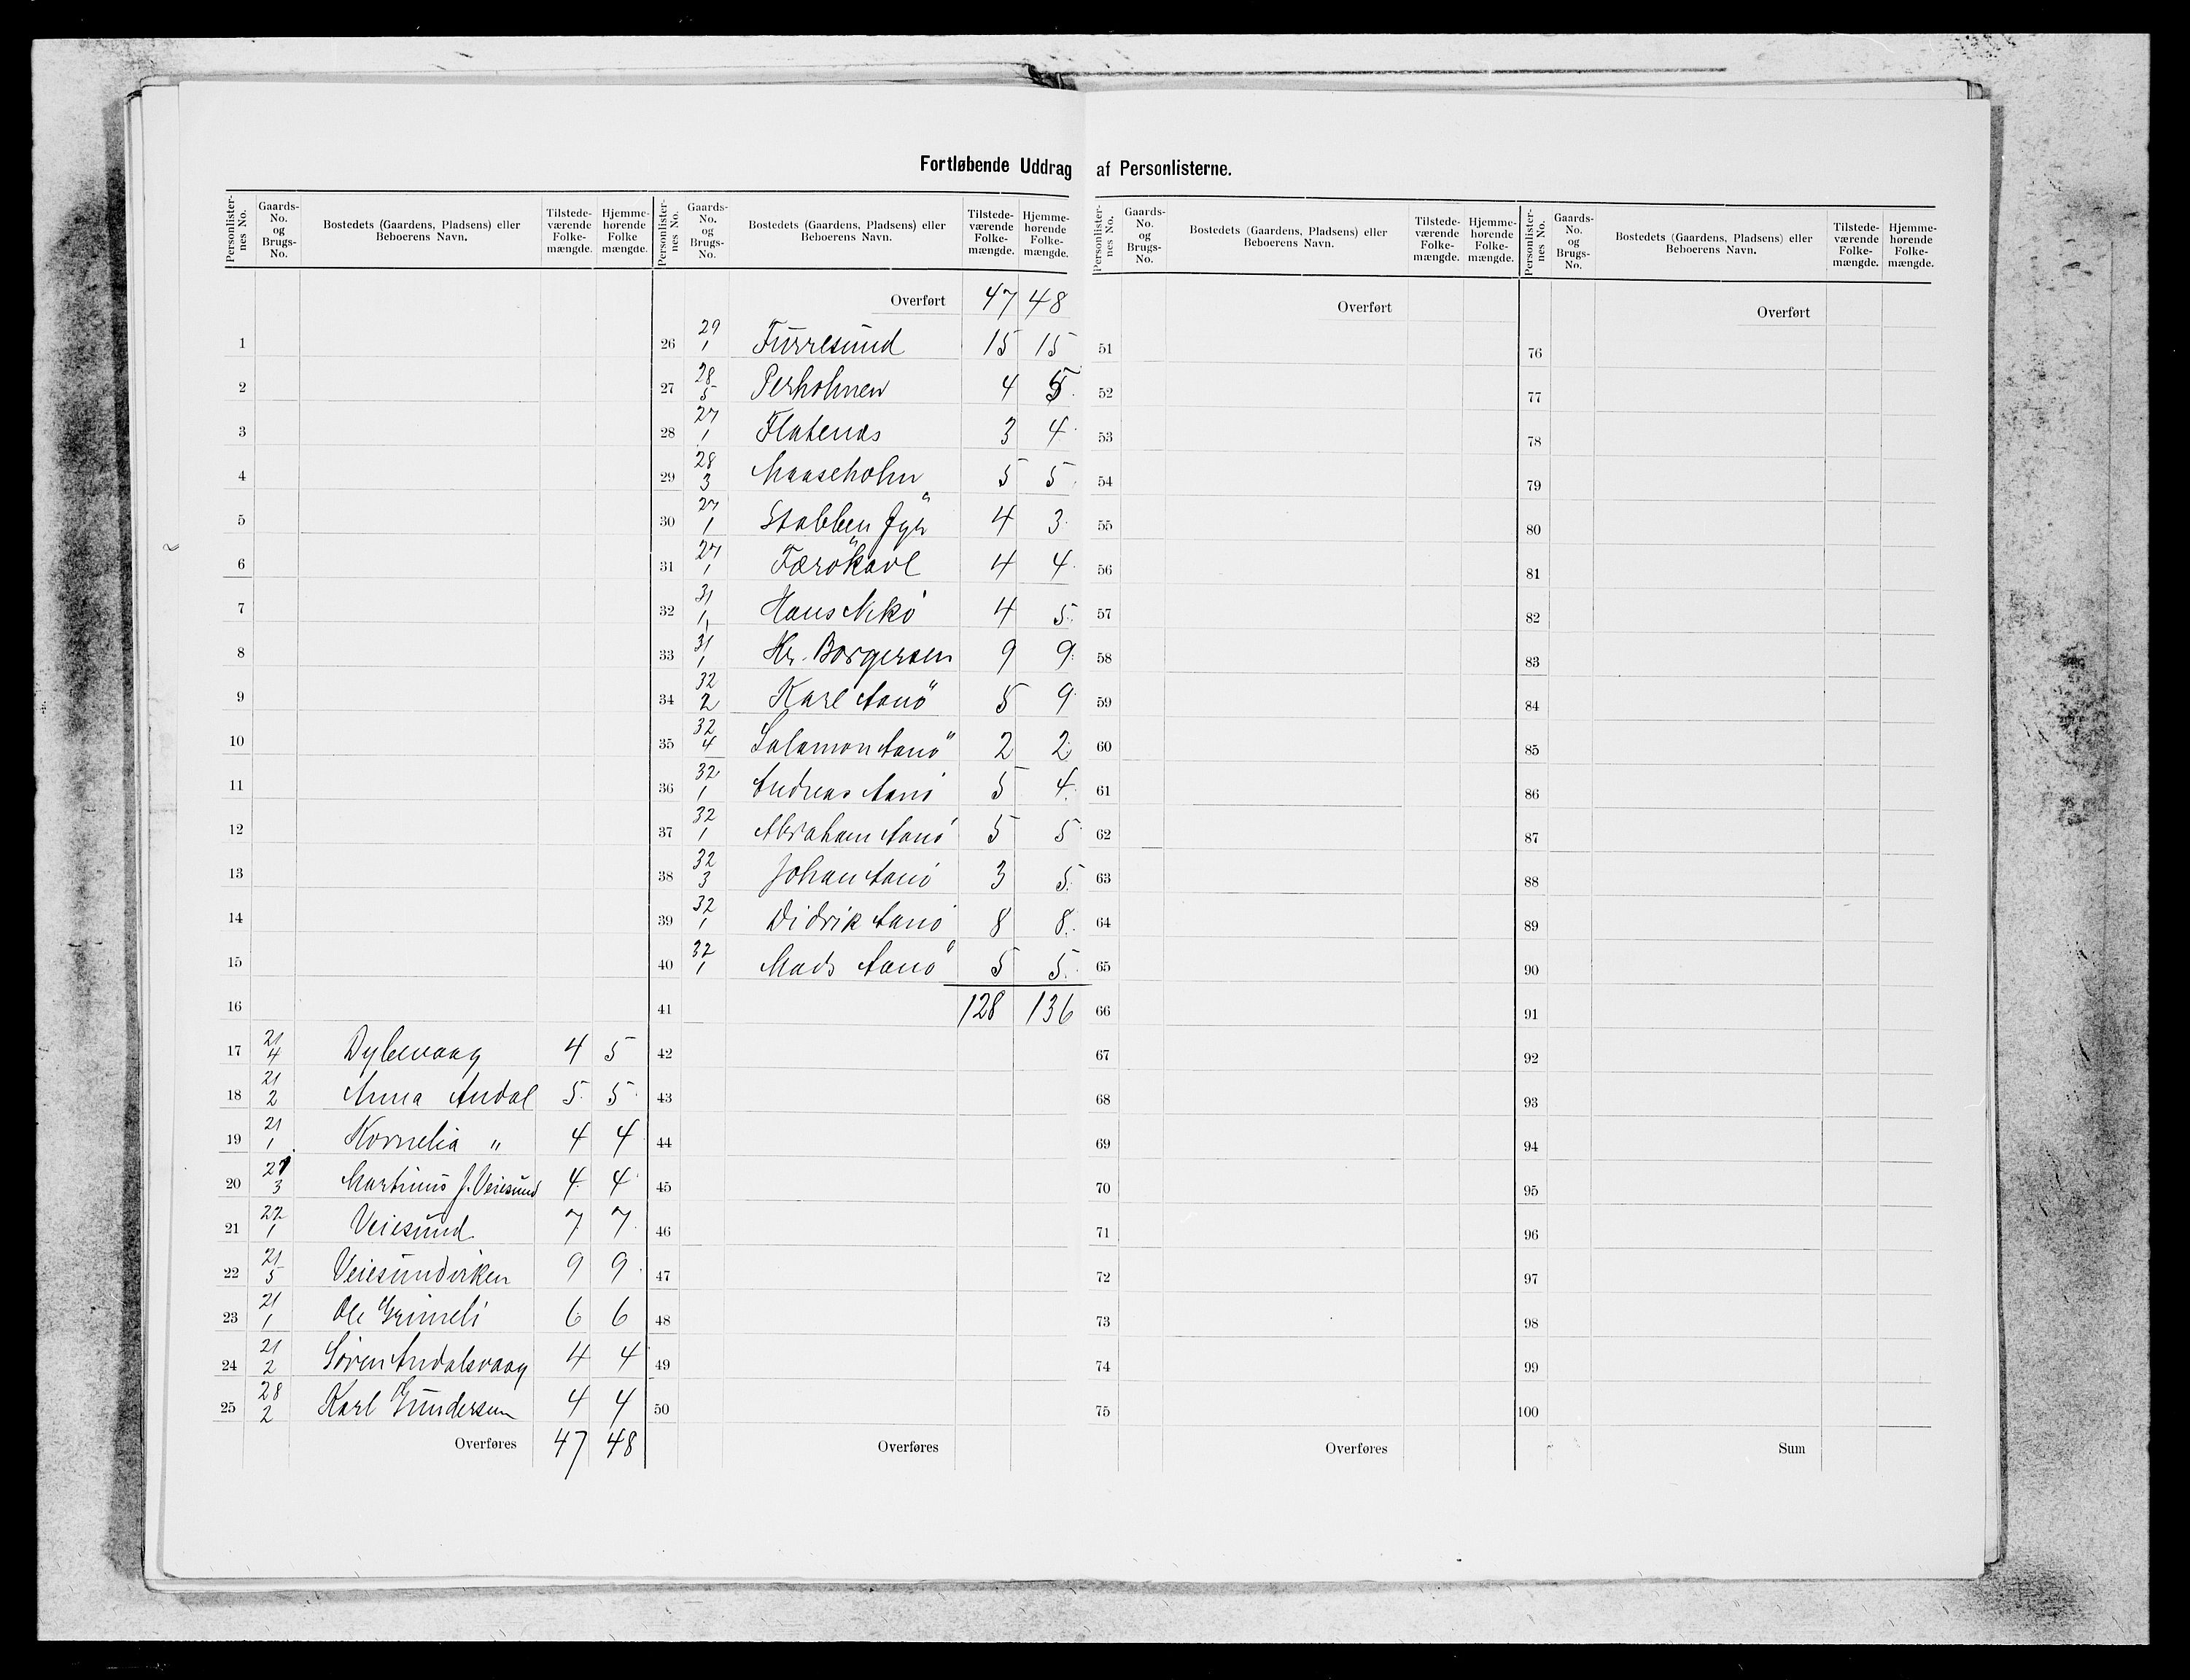 Fortløbende Uddrag af Personlisterne.
Personlisternes No. Gaards-No. og Brugs-No. Bostedets (Gaardens, Pladsens) eller Beboerens Navn. Tilstedeværende Folkemængde. Hjemmehørende Folke mængde.
1
2
3
4
5
6
7
8
9
10
11
12
13
14
15
16
17 21/4 Dybevaag 4 5
18 21/2 Anna Andal 5 5
19 21/1 Kornelia " 4 4
20 21/3 Martinus J. Veiesund 4 4
21 22/1 Veiesund 7 7
22 21/5 9 9
23 21/1 Ole 6 6
24 21/2 Sören Andalsvaag 4 4
25 28/2 Karl Gundersen 4 4
Overføres 47 48
Personlisternes No. Gaards-No. og Brugs-No. Bostedets (Gaardens, Pladsens) eller Beboerens Navn. Tilstedeværende Folkemængde. Hjemmehørende Folkemængde.
Overført 47 48
26 29/1 Furresund 15 15
27 28/5 Perholmen 4 5
28 27/1 Flatenes 3 4
29 28/3 Maaseholm 5 5
30 27/1 Stabben Fyr 4 3
31 27/1 4 4
32 31/1 Hans Nekö 4 5
33 31/1 Hr. Borgersen 9 9
34 32/2 Karl Aanö 5 9
35 32/4 Salamon Aanö 2 2
36 32/1 Andreas Aanö 5 4
37 32/1 Abraham Aanö 5 5
38 32/3 Johan Aanö 3 5
39 32/1 Didrik Aanö 8 8
40 32/1 Mads Aanö 5 5
41 128 136
42
43
44
45
46
47
48
49
50
Overføres
Personlisternes No. Gaards-No. og Brugs-No. Bostedets (Gaardens, Pladsens) eller Beboerens Navn. Tilstedeværende Folkemængde. Hjemmehørende Folkemængde.
Overført
51
52
53
54
55
56
57
58
59
60
61
62
63
64
65
66
67
68
69
70
71
72
73
74
75
Overføres
Personlisternes No. Gaards-No. og Brugs-No. Bostedets (Gaardens, Pladsens) eller Beboerens Navn. Tilstedeværende Folkemængde. Hjemmehørende Folkemængde.
Overført
76
77
78
79
80
81
82
83
84
85
86
87
88
89
90
91
92
93
94
95
96
97
98
99
100
Sum